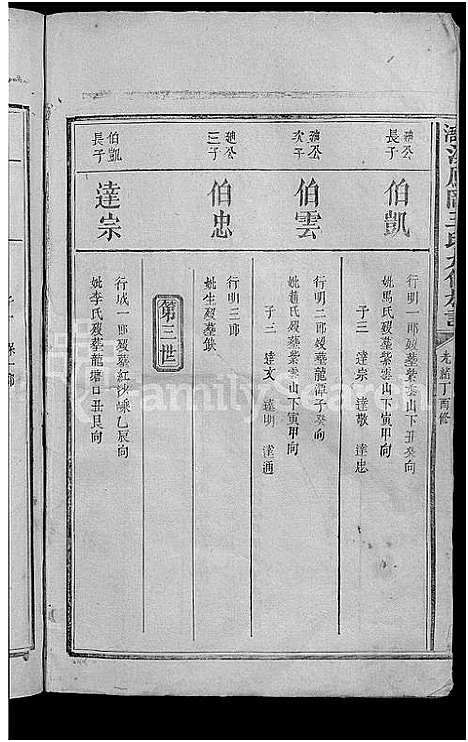 光緒丁酉修
迪公
長子
伯凱
行明一郎歿葬紫雲山下丑癸向
妣馬氏歿葬紫雲山下寅甲向
子三 達宗 達敬 達忠
迪公
次子
伯雲
行明二郎歿葬龍潭子癸向
妣趙氏歿葬紫雲山下寅甲向
子三 達文 達明 達通
迪公
三子
伯忠
行明三郎
妣生歿葬缺
第三世
伯凱
長子
達宗
行成一郎歿葬紅沙嵊乙辰向
妣李氏歿葬龍塘口丑艮向
FamilySearch